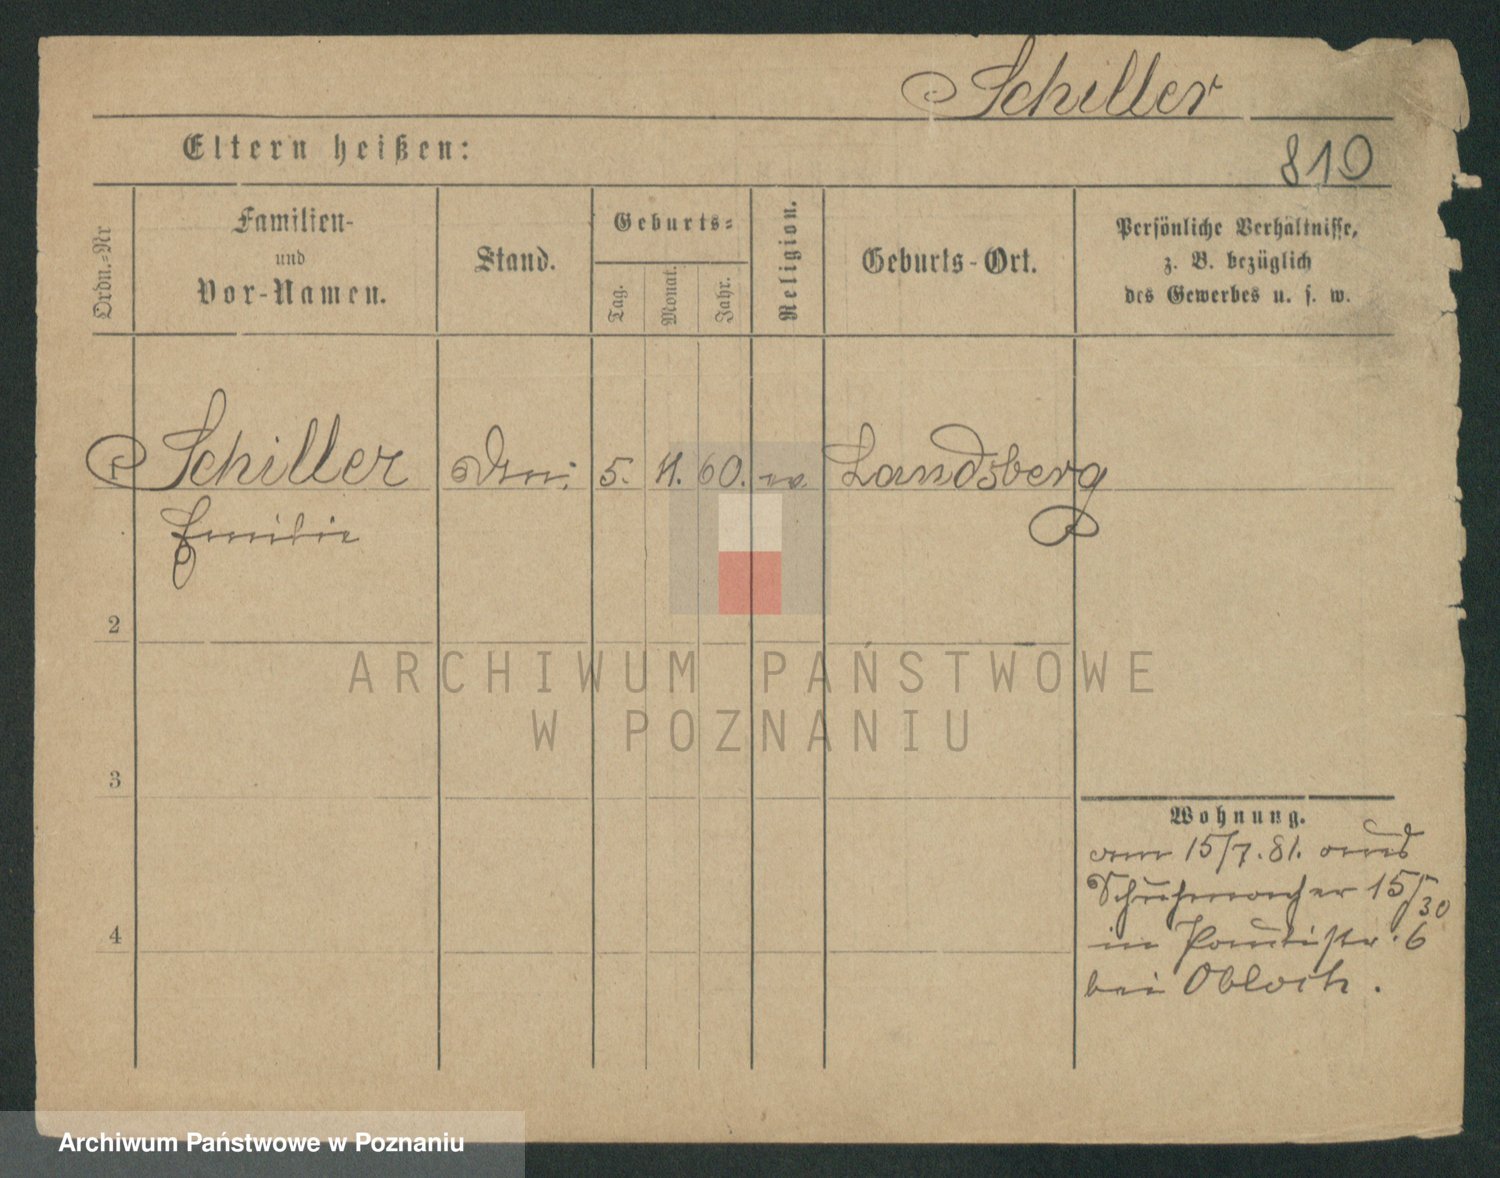 Schiller
Eltern heißen:
810
Ordn.=Nr
Familien-
und
Vor-Namen.
Stand.
Geburts=
Tag.
Monat.
Jahr.
Religion.
Geburts-Ort.
Persönliche Verhältnisse,
z. B. bezüglich
des Gewerbes u. s. w.
Schiller
5. 11. 60.
Landsberg
Emilie
2
3
4
Wohnung.
am 15/7. 81. aus
Schuhmacher 15/30
in 6
bei
ARCHIWUM PAŃSTWOWE
W POZNANIU
Archiwum Państwowe w Poznaniu